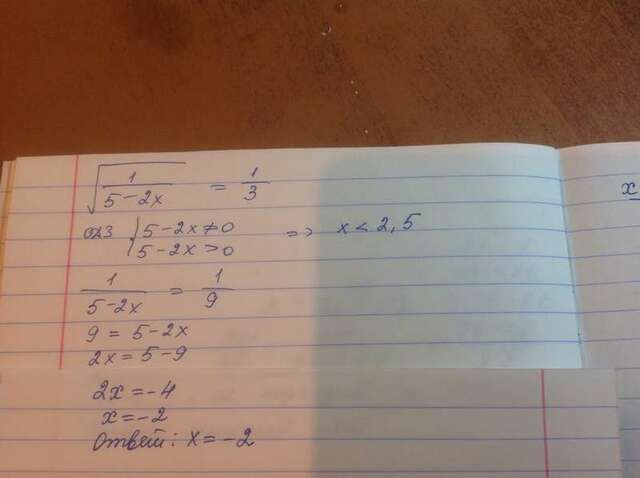 √(1/(5-2x)) = 1/3
ОДЗ { 5-2x≠0
5-2x>0 => x<2,5
1/(5-2x) = 1/9
9 = 5-2x
2x = 5-9
2x = -4
x = -2
Ответ: x = -2
x